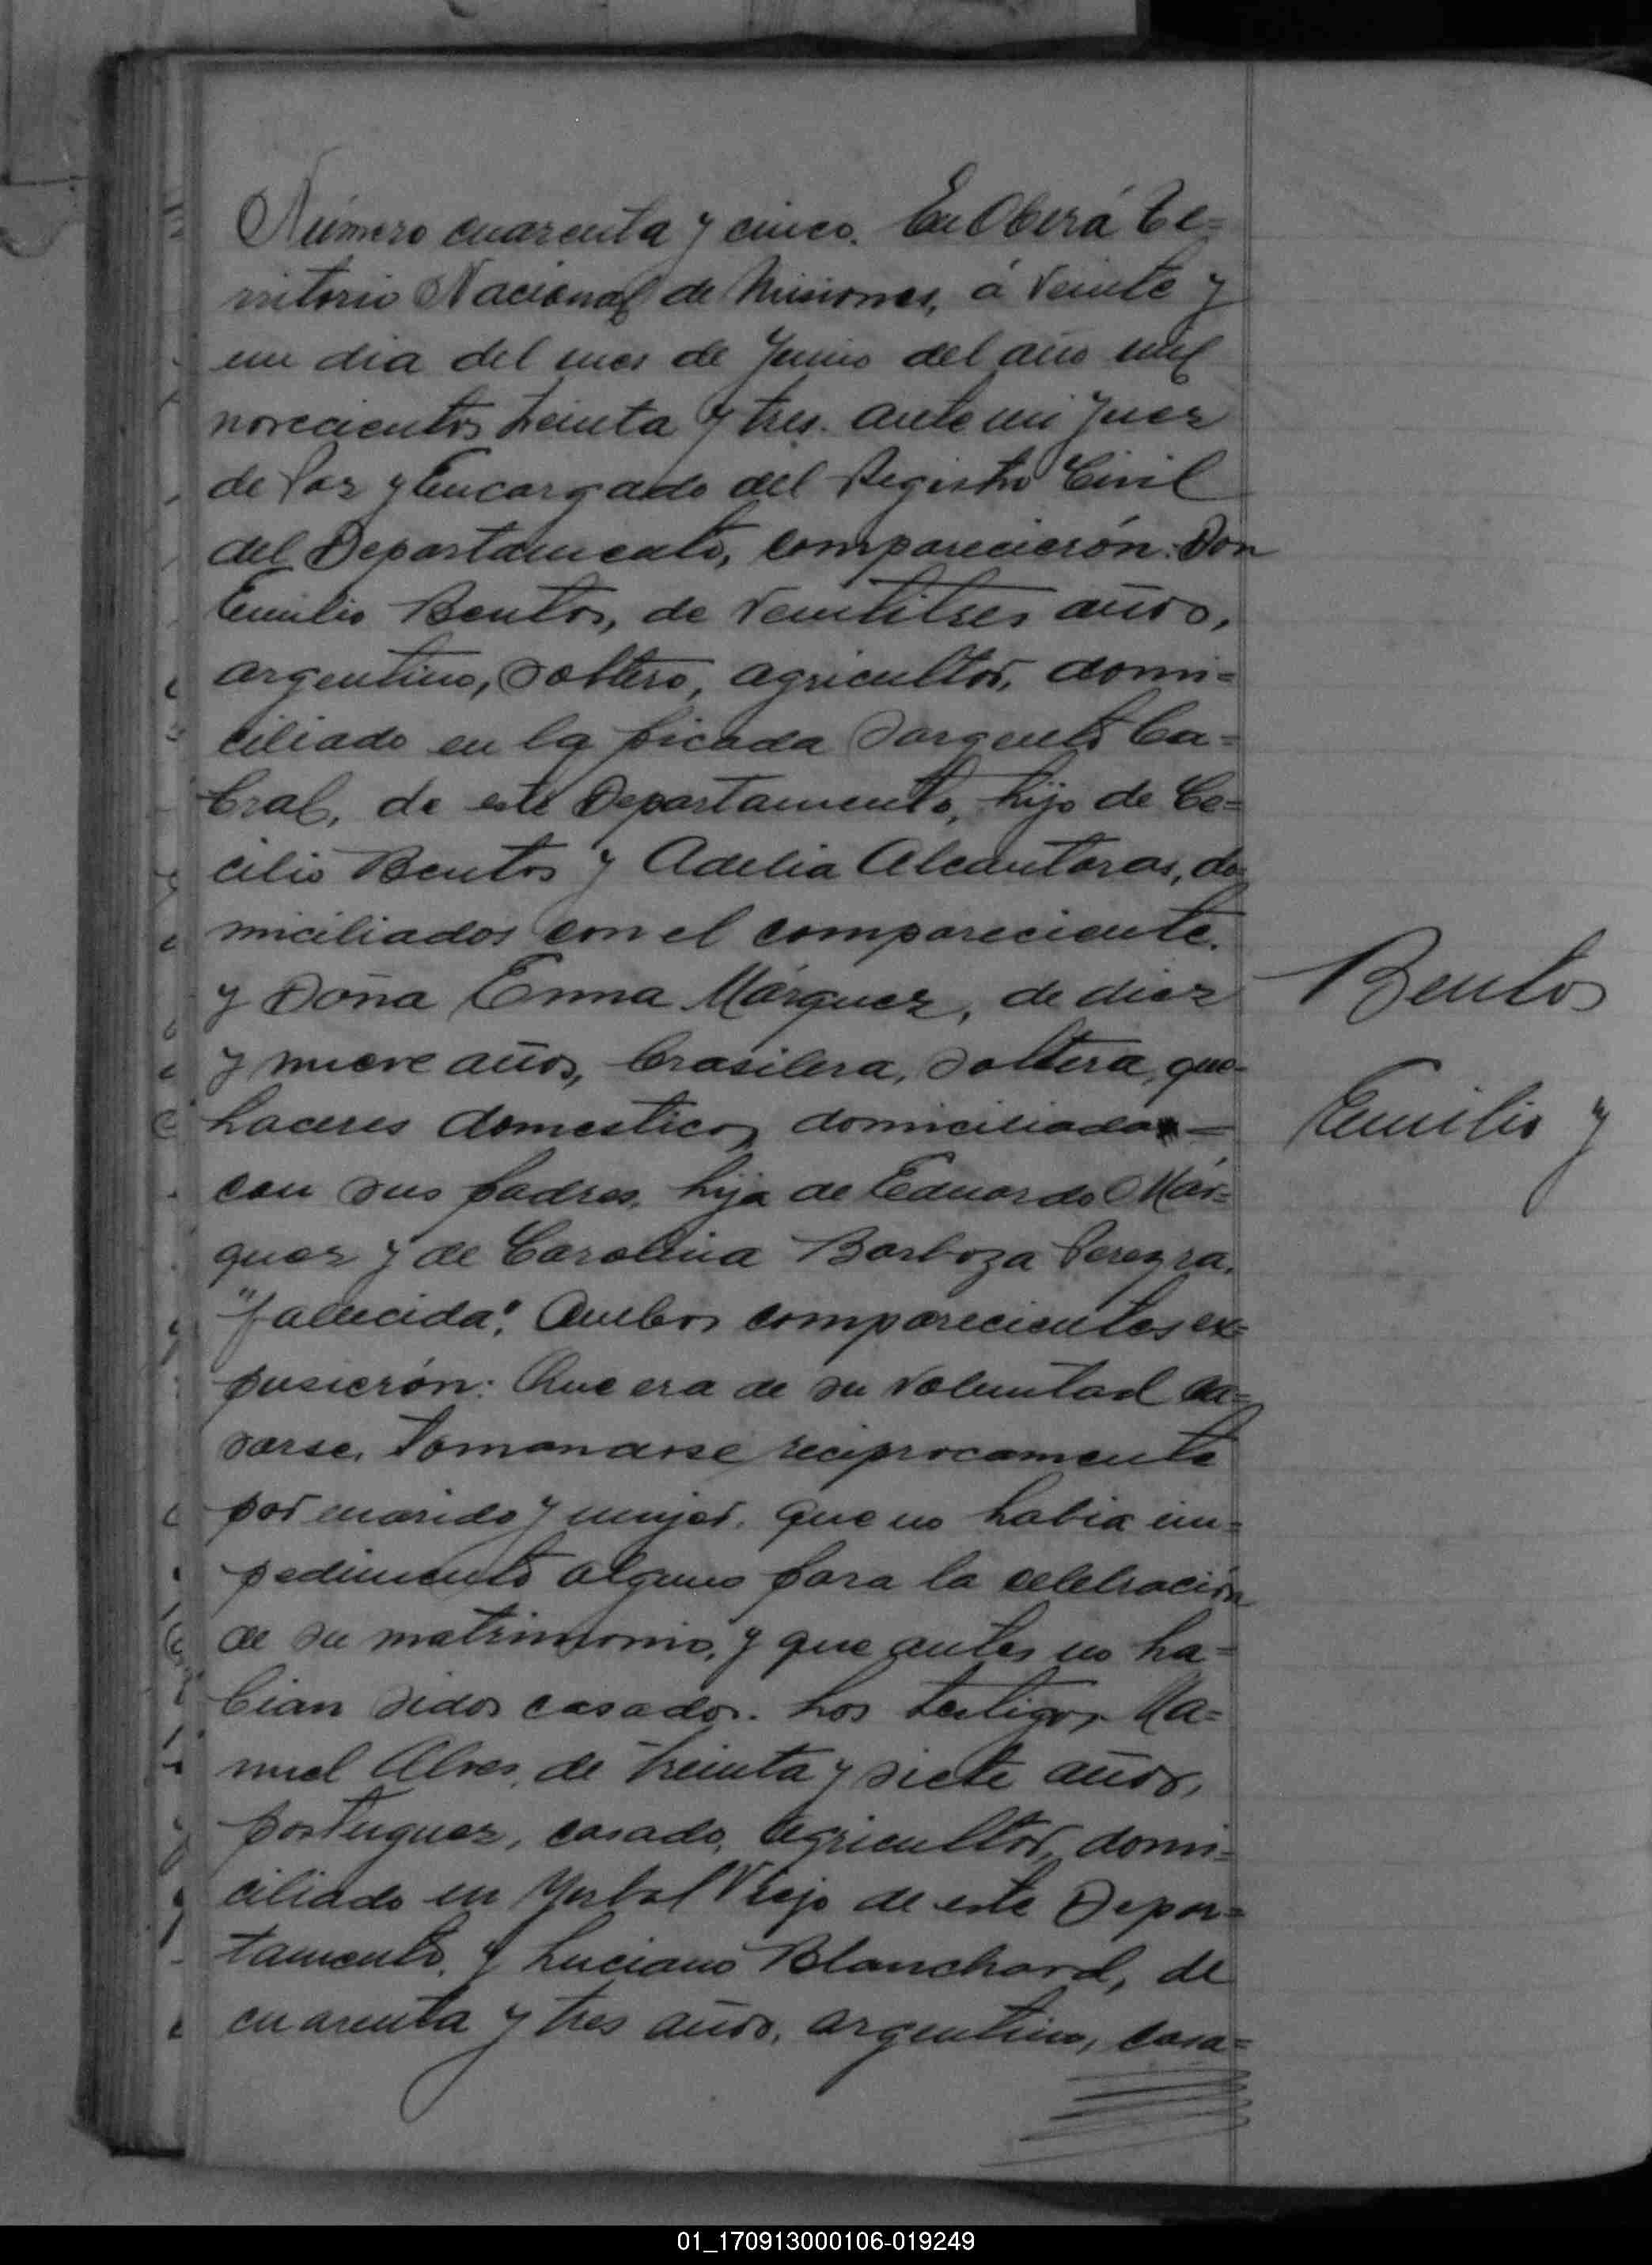 Número cuarenta y cinco. En Oberá Te=
rritorio Nacional de Misiones, á veinte y
un dia del mes de Junio del año mil
novecientos treinta y tres. ante mi Juez
de Paz y Encargado del Registro Civil
del Departamento, comparecierón: Don
Emilio Bentos, de veintitres años,
argentino, soltero, agricultor, domi=
ciliado en la picada Sargento Ca=
bral, de este Departamento, hijo de Ce=
cilio Bentos y Adelia Alcantaras, do=
miciliados con el compareciente.
y Doña Enma Márquez, de diez
y nueve años, brasilera, soltera, que=
haceres domesticos, domiciliada =
con sus padres, hija de Eduardo Már=
quez y de Carolina Barboza Pereyra,
"fallecida". Ambos comparecientes ex=
pusierón: Que era de su voluntad ca=
sarse, tomandose reciprocamente
por marido y mujer. que no habia im=
pedimento alguno para la celebración
de su matrimonio, y que antes no ha=
bian sidos casados. Los testigos Ma=
nuel Alves, de treinta y siete años,
portuguez, casado, agricultor, domi=
ciliado en Yerbal Viejo de este Depar=
tamento. y Luciano Blanchard, de
cuarenta y tres años, argentino, casa=
Bentos
Emilio y
01_170913000106-019249